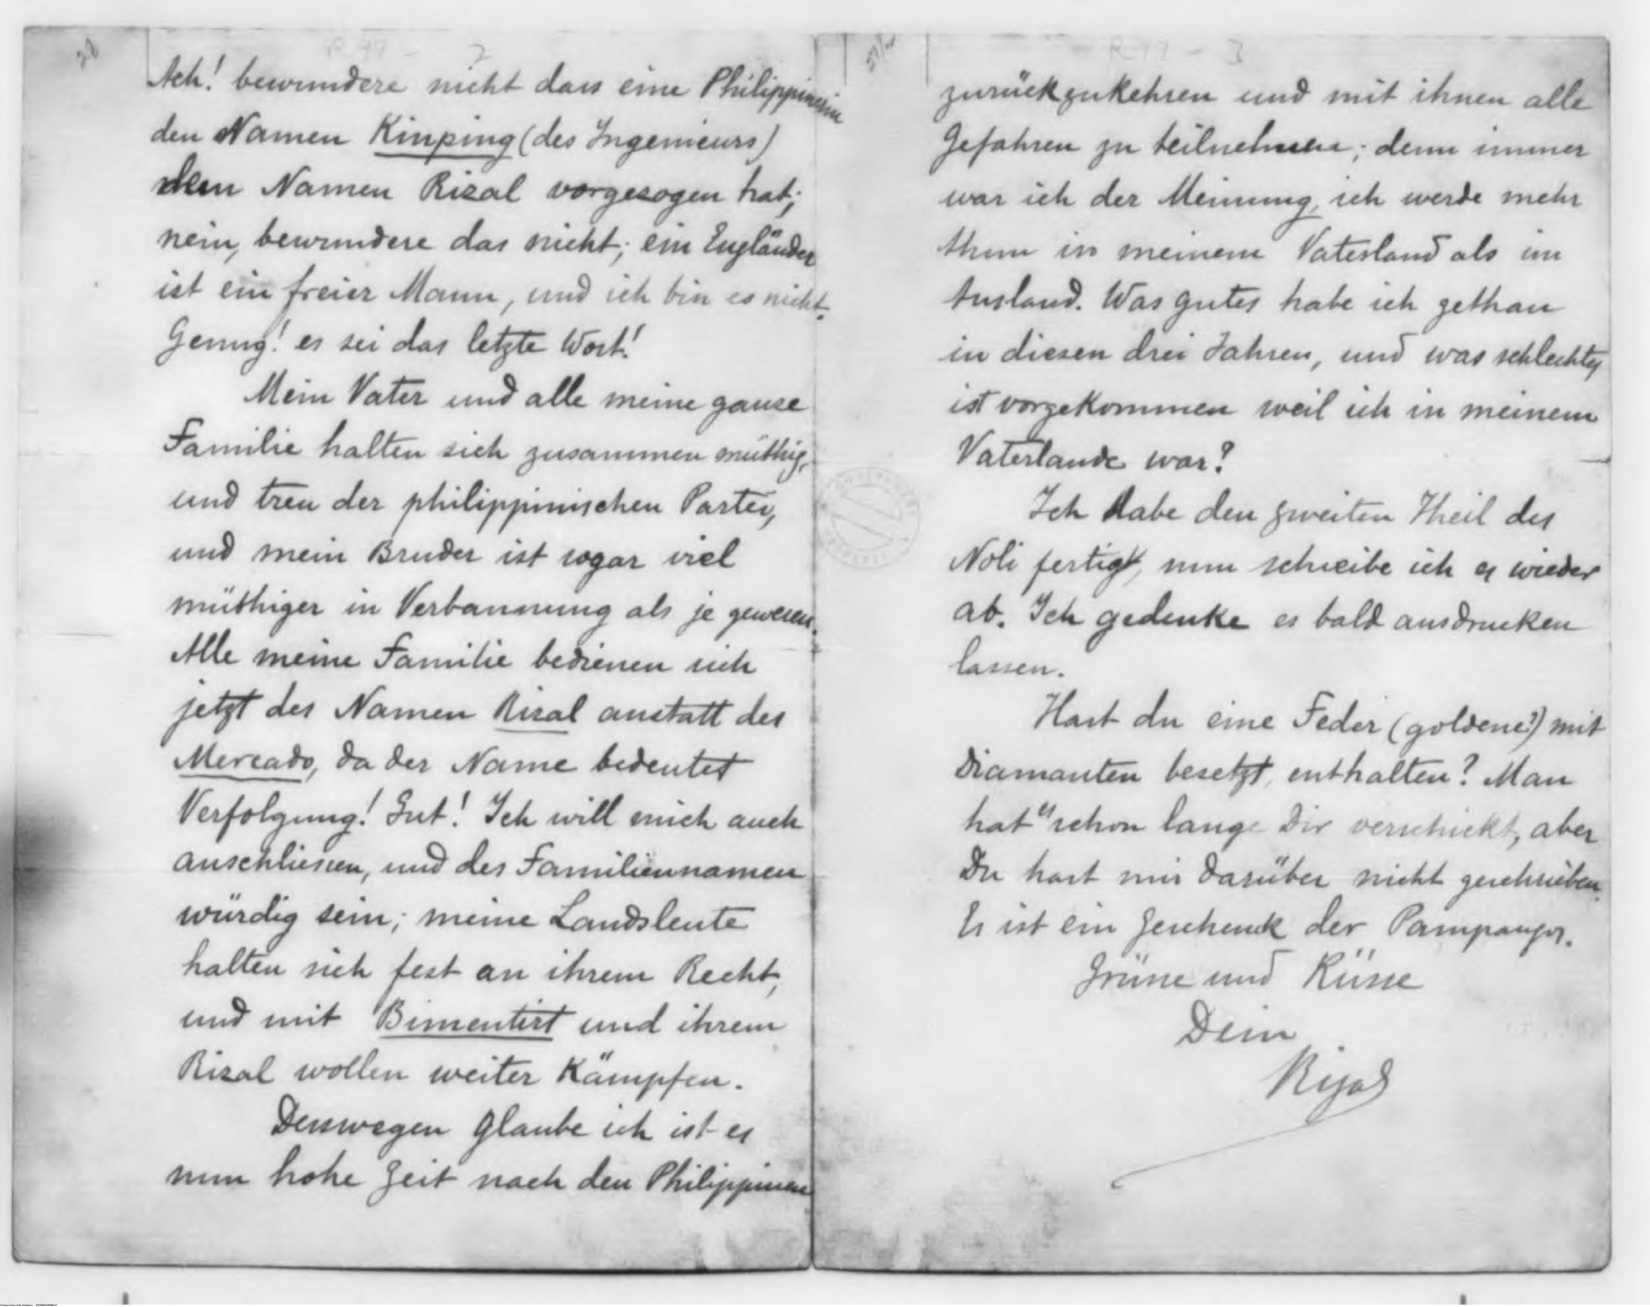 Ach! bewundere nicht dass eine Philippinerin
den Namen Kinping (des Ingenieurs)
dem Namen Rizal vorgezogen hat;
nein, bewundere das nicht; ein Engländer
ist ein freier Mann, und ich bin es nicht.
Genug! es sei das letzte Wort!
Mein Vater und alle meine ganze
Familie halten sich zusammen müthig,
und treu der philippinischen Partei,
und mein Bruder ist sogar viel
müthiger in Verbannung als je gewesen.
Alle meine Familie bedienen sich
jetzt des Namen Rizal anstatt des
Mercado, da der Name bedeutet
Verfolgung! Gut! Ich will mich auch
anschliessen, und des Familiennamen
würdig sein; meine Landsleute
halten sich fest an ihrem Recht,
und mit Blumentritt und ihrem
Rizal wollen weiter Kämpfen.
Desswegen glaube ich ist es
nun hohe Zeit nach den Philippinen
zurückzukehren und mit ihnen alle
Gefahren zu teilnehmen; denn immer
war ich der Meinung, ich werde mehr
thun in meinem Vaterland als im
Ausland. Was gutes habe ich gethan
in diesen drei Jahren, und was schlechtes
ist vorgekommen weil ich in meinem
Vaterlande war?
Ich habe den zweiten Theil des
Noli fertig, nun schreibe ich es wieder
ab. Ich gedenke es bald ausdrucken
lassen.
Hast du eine Feder (goldene?) mit
Diamanten besetzt, enthalten? Man
hat es schon lange Dir verschickt, aber
Du hast mir darüber nicht geschrieben.
Es ist ein Geschenk der Pampangos.
Grüsse und Küsse
Dein
Rizal